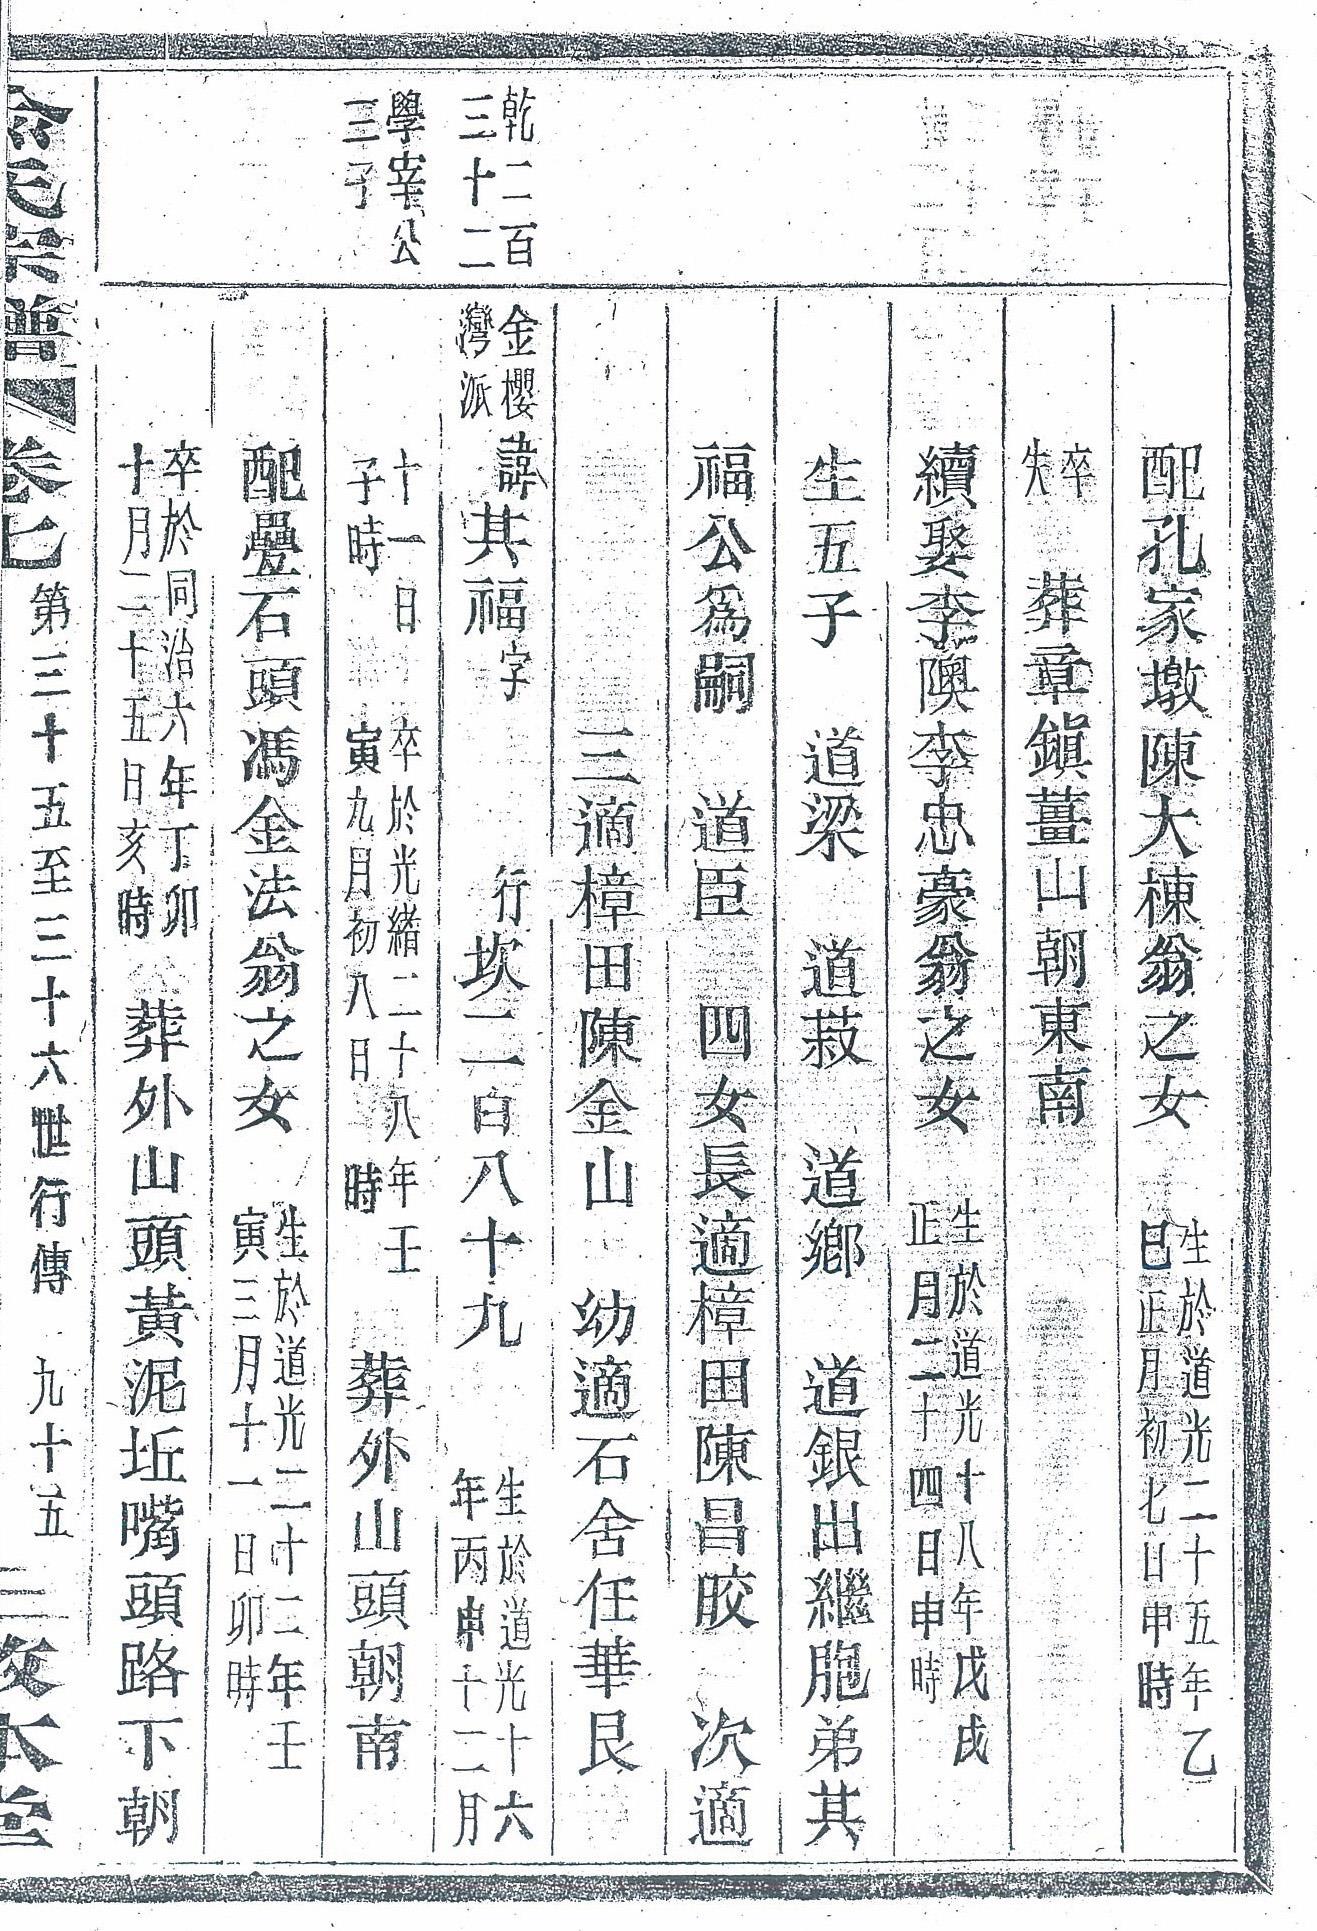 配孔家墩陳大棟翁之女
生於道光二十五年乙
巳正月初七日申時
卒
失
葬章鎮薑山朝東南
續娶李隩李忠豪翁之女
生於道光十八年戊戌
正月二十四日申時
生五子 道梁 道菽 道鄉 道銀出繼胞弟其
福公爲嗣 道臣 四女長適樟田陳昌咬 次適
三適樟田陳金山 幼適石舍任華艮
乾二百
三十二
金櫻
灣派
諱其福字 行坎二百八十九
生於道光十六
年丙申十二月
學宰公
三子
十一日
子時
卒於光緒二十八年壬
寅九月初八日 時
葬外山頭朝南
配疊石頭馮金法翁之女
生於道光二十二年壬
寅三月十一日卯時
卒於同治六年丁卯
十月二十五日亥時
葬外山頭黃泥坵嘴頭路下朝
氏宗譜 卷七 第三十五至三十六世行傳 九十五 本堂